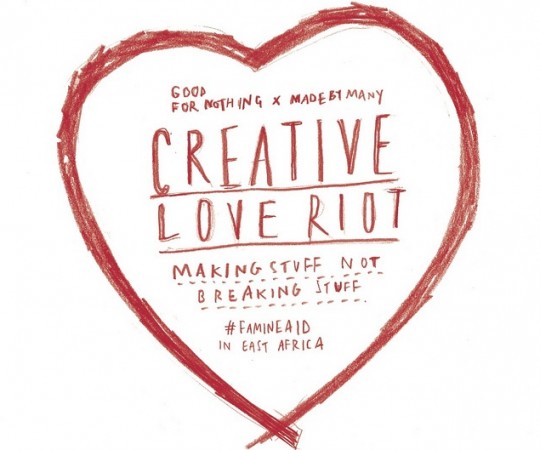 GOOD
FOR NOTHING X MADE BY MANY
CREATIVE
LOVE RIOT
MAKING STUFF NOT
BREAKING STUFF
#FAMINEAID
IN EAST AFRICA